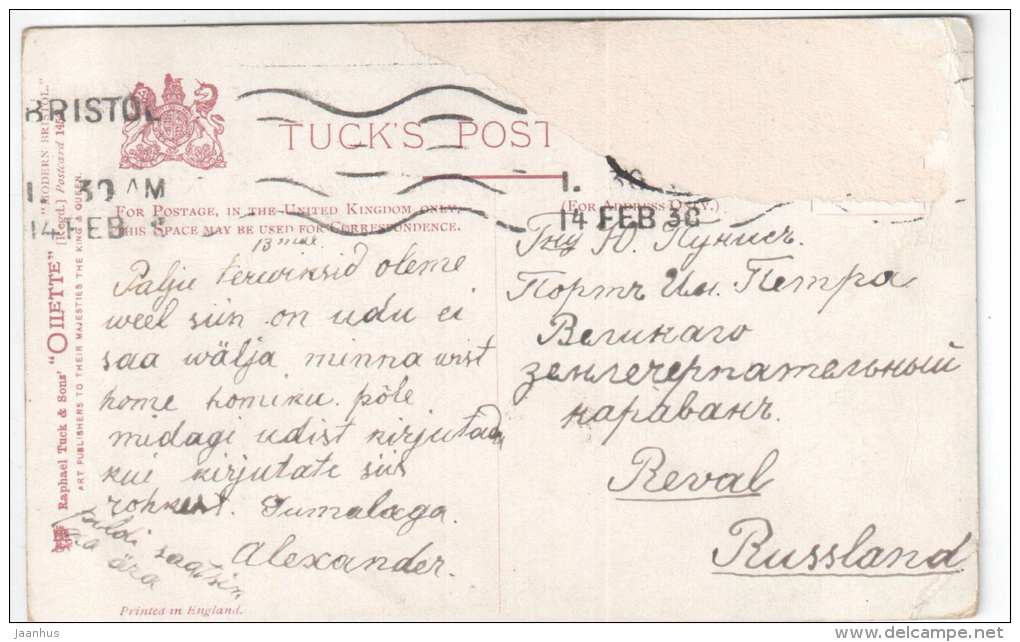 BRISTOL
1. 30 AM
14 FEB
TUCK'S POST
1. 30
14 FEB 3C
FOR POSTAGE, IN THE UNITED KINGDOM ONLY,
THIS SPACE MAY BE USED FOR CORRESPONDENCE.
(FOR ADDRESS ONLY.)
13 mal
Palju terwiksid oleme
weel siin on udu ei
saa wälja minna wist
home homiku. pole
midagi udist kirjutada
kui kirjutate siis
rohkest. Jumalaga.
Alexander.
pildi saatsin
ma ära
Гну Ю. Пунисъ.
Портъ Им. Петра
Великаго
землечерпательный
караванъ.
Reval
Russland
Raphael Tuck & Sons' "OILETTE" [Regd.] Postcard 145
"MODERN BRISTOL."
ART PUBLISHERS TO THEIR MAJESTIES THE KING & QUEEN.
Printed in England.
© janhus
www.delcampe.net